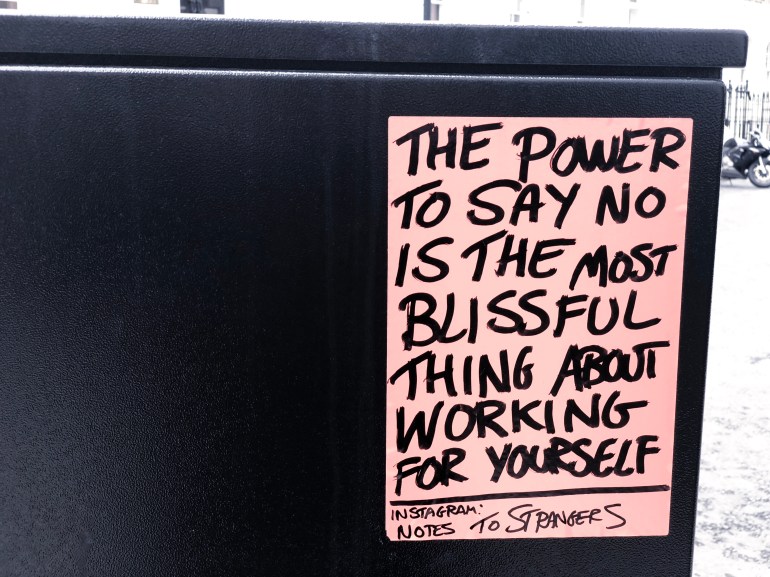 THE POWER
TO SAY NO
IS THE MOST
BLISSFUL
THING ABOUT
WORKING
FOR YOURSELF
INSTAGRAM:
NOTES TO STRANGERS